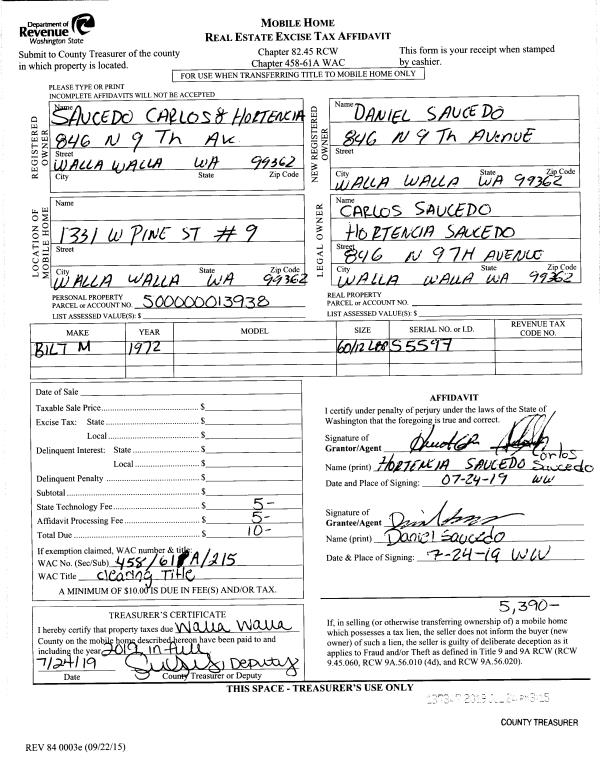 Department of
Revenue
Washington State
MOBILE HOME
REAL ESTATE EXCISE TAX AFFIDAVIT
Submit to County Treasurer of the county
in which property is located.
Chapter 82.45 RCW
Chapter 458-61A WAC
This form is your receipt when stamped
by cashier.
FOR USE WHEN TRANSFERRING TITLE TO MOBILE HOME ONLY
PLEASE TYPE OR PRINT
INCOMPLETE AFFIDAVITS WILL NOT BE ACCEPTED
REGISTERED OWNER
Name
SAUCEDO CARLOS & HORTENCIA
846 N 9 Th Ave
Street
WALLA WALLA WA 99362
City State Zip Code
NEW REGISTERED OWNER
Name
DANIEL SAUCEDO
846 N 9 Th AVENUE
Street
WALLA WALLA WA 99362
City State Zip Code
LOCATION OF MOBILE HOME
Name
1331 W PINE ST #9
Street
WALLA WALLA WA 99362
City State Zip Code
LEGAL OWNER
Name
CARLOS SAUCEDO
HORTENCIA SAUCEDO
Street
846 N 9TH AVENUE
City State Zip Code
WALLA WALLA WA 99362
PERSONAL PROPERTY
PARCEL or ACCOUNT NO. 500000013938
LIST ASSESSED VALUE(S): $
REAL PROPERTY
PARCEL or ACCOUNT NO.
LIST ASSESSED VALUE(S): $
MAKE YEAR MODEL SIZE SERIAL NO. or I.D. REVENUE TAX CODE NO.
BILT M 1972 60/12 S5597
Date of Sale
Taxable Sale Price $
Excise Tax: State $
Local $
Delinquent Interest: State $
Local $
Delinquent Penalty $
Subtotal $
State Technology Fee $ 5-
Affidavit Processing Fee $ 5-
Total Due $ 10-
If exemption claimed, WAC number & title:
WAC No. (Sec/Sub) 458/61A/215
WAC Title clearing Title
A MINIMUM OF $10.00 IS DUE IN FEE(S) AND/OR TAX.
AFFIDAVIT
I certify under penalty of perjury under the laws of the State of
Washington that the foregoing is true and correct.
Signature of
Grantor/Agent
Name (print) HORTENCIA SAUCEDO Carlos Saucedo
Date and Place of Signing: 07-24-19 WW
Signature of
Grantee/Agent
Name (print) Daniel Saucedo
Date & Place of Signing: 7-24-19 WW
5,390-
TREASURER'S CERTIFICATE
I hereby certify that property taxes due Walla Walla
County on the mobile home described hereon have been paid to and
including the year 2019 in full
7/24/19 Deputy
Date County Treasurer or Deputy
If, in selling (or otherwise transferring ownership of) a mobile home
which possesses a tax lien, the seller does not inform the buyer (new
owner) of such a lien, the seller is guilty of deliberate deception as it
applies to Fraud and/or Theft as defined in Title 9 and 9A RCW (RCW
9.45.060, RCW 9A.56.010 (4d), and RCW 9A.56.020).
THIS SPACE - TREASURER'S USE ONLY
COUNTY TREASURER
REV 84 0003e (09/22/15)